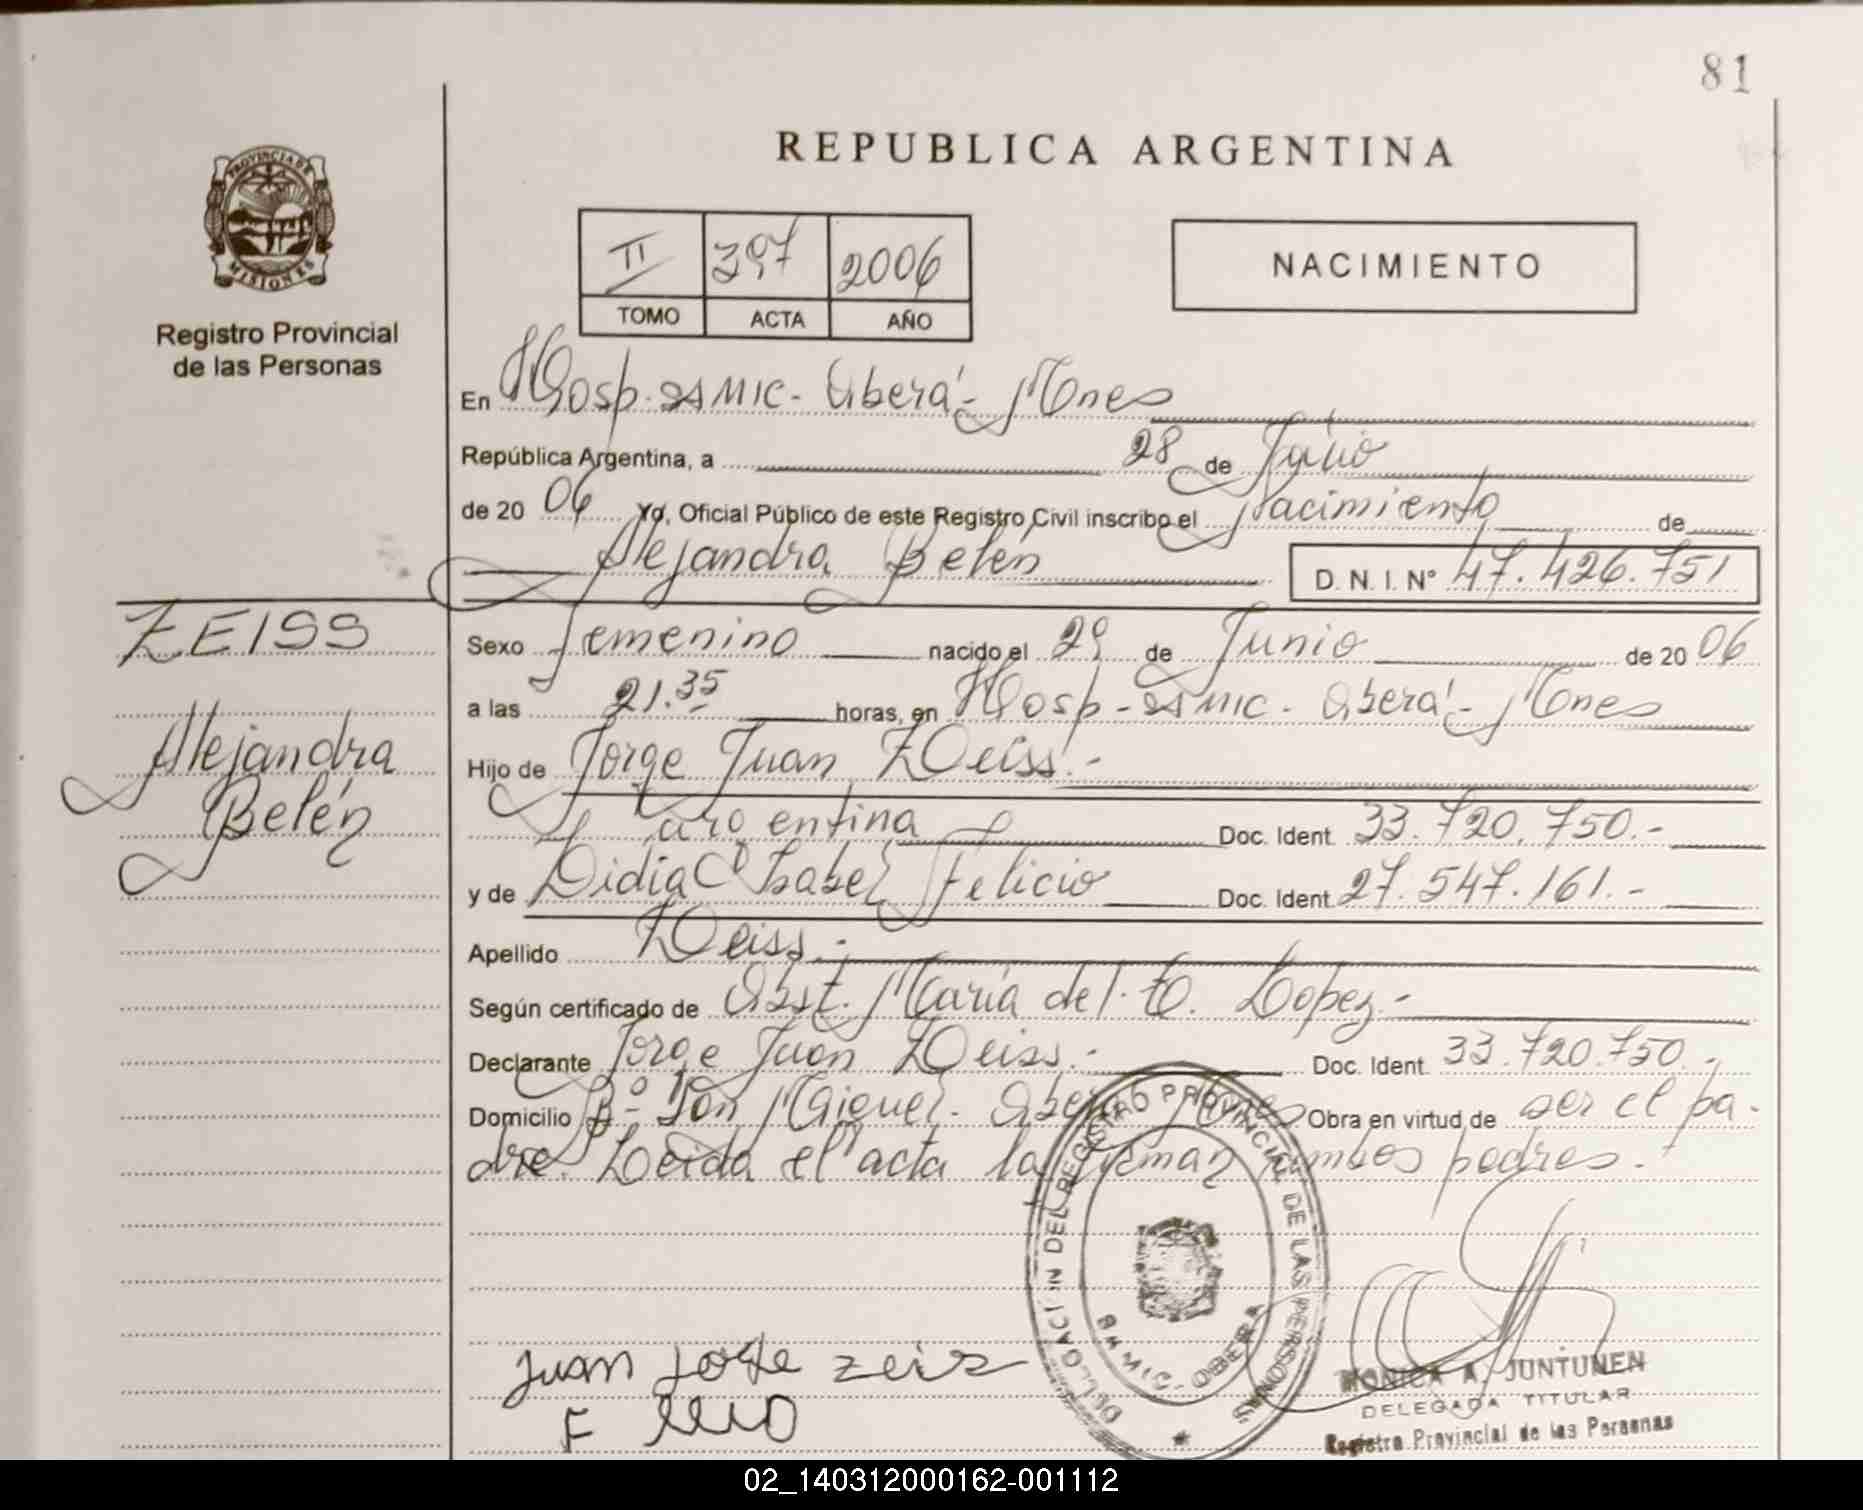 81
REPUBLICA ARGENTINA
PROVINCIA DE MISIONES
Registro Provincial
de las Personas
II 397 2006
TOMO ACTA AÑO
NACIMIENTO
En Hosp. SAMIC - Oberá - Mnes
República Argentina, a 28 de Julio
de 20 06 Yo, Oficial Público de este Registro Civil inscribo el Nacimiento de
Alejandra Belén D. N. I. Nº 47.426.751
ZEISS
Alejandra
Belén
Sexo femenino nacido el 29 de Junio de 20 06
a las 21.35 horas, en Hosp - SAMIC - Oberá - Mnes
Hijo de Jorge Juan Zeiss.-
argentina Doc. Ident. 33.720.750.-
y de Lidia Isabel Felicio Doc. Ident. 27.547.161.-
Apellido Zeiss.-
Según certificado de Obst. María del. Lopez.-
Declarante Jorge Juan Zeiss.- Doc. Ident. 33.720.750.-
Domicilio Bº Don Miguel. Oberá Mnes Obra en virtud de ser el pa-
dre. Leida el acta la firman ambos padres.-
DELEGACION DEL REGISTRO PROVINCIAL DE LAS PERSONAS
SAMIC - OBERA
Juan Jorge zeis
MONICA A. JUNTUNEN
DELEGADA TITULAR
Registro Provincial de las Personas
02_140312000162-001112